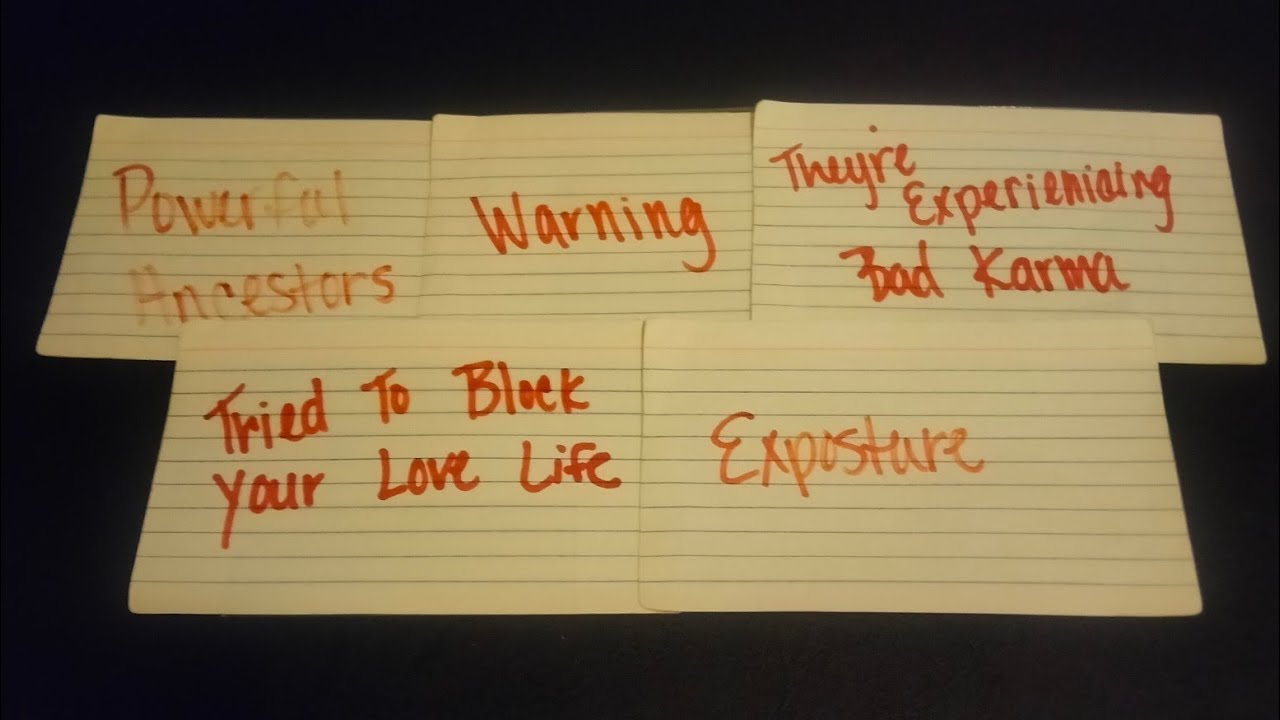 Powerful
Ancestors
Warning
They're
Experieniaing
Bad Karma
Tried To Block
Your Love Life
Exposture